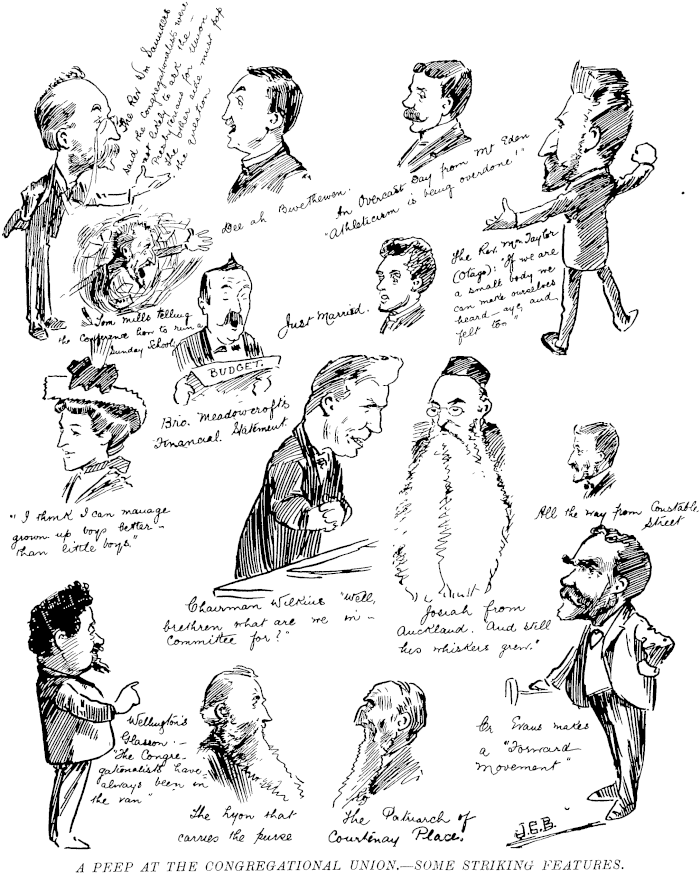 The Rev Wm Saunders
said the Congregationalists were
not likely to ask the -
Presbyterians for union
the other side must pop
the question
Dee ah Bwethewen.
An Overcast Day from Mt Eden
"Athleticism is being overdone!"
The Rev. Mr. Taylor
(Otago): "If we are
a small body we
can make ourselves
heard - ay, and
felt too"
Tom Mills telling
the Conference how to run a
Sunday School
Just Married.
BUDGET.
Bro. Meadowcroft's
Financial Statement
"I think I can manage
grown up boys better -
than little boys."
Chairman Wilkins "Well,
brethren what are we in -
Committee for?"
Josiah from
Auckland. And still
his whiskers grew."
All the way from Constable
Street
Wellington's
Glasson. -
"The Congre-
gationalists have
always been in
the van"
The Lyon that
carries the purse
The Patriarch of
Courtenay Place.
Cr Evans makes
a "Forward
Movement"
J.C.B.
A PEEP AT THE CONGREGATIONAL UNION.—SOME STRIKING FEATURES.